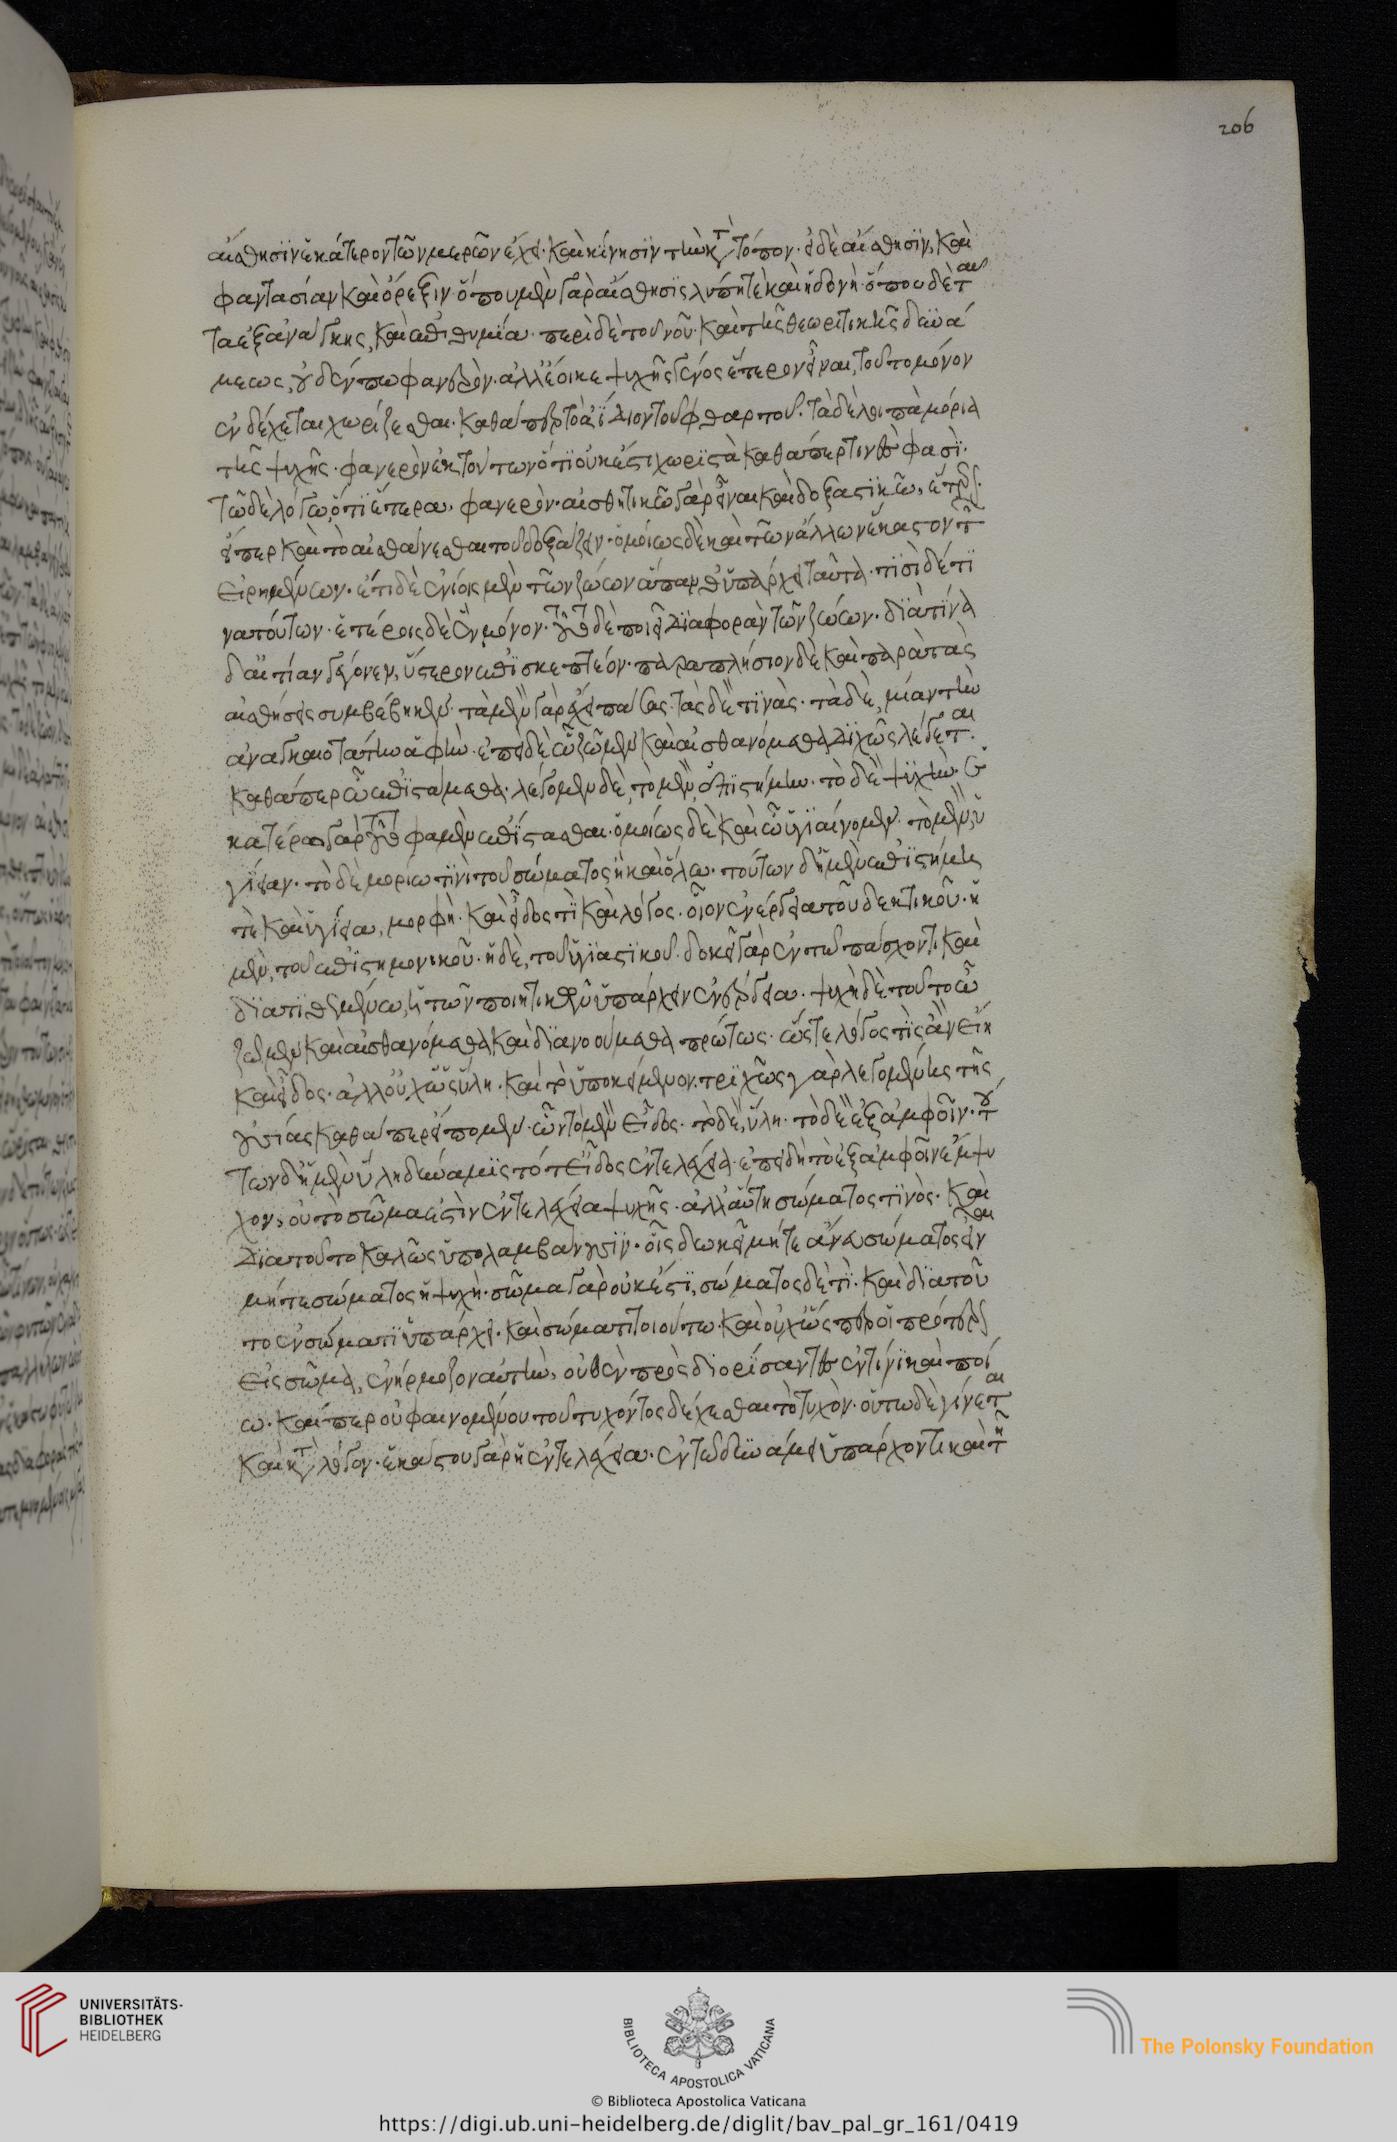 αἴσθησιν ἑκάτερον τῶν μερῶν ἔχει· καὶ κίνησιν τὴν κατὰ τόπον· εἰ δὲ αἴσθησιν, καὶ
φαντασίαν καὶ ὄρεξιν· ὅπου μὲν γὰρ αἴσθησις λύπη τὲ καὶ ἡδονὴ· ὅπου δὲ ταῦ
τα ἐξανάγκης, καὶ ἐπιθυμία· περὶ δὲ τοῦ νοῦ καὶ τῆς θεωρητικῆς δυνά
μεως, οὐδέν πω φανερὸν· ἀλλ' ἔοικε ψυχῆς γένος ἕτερον εἶναι, τοῦτο μόνον
ἐνδέχεται χωρίζεσθαι· καθάπερ τὸ ἀΐδιον τοῦ φθαρτοῦ· τὰ δὲ λοιπὰ μόρια
τῆς ψυχῆς· φανερὸν ἐκ τούτων ὅτι οὐκ ἔστι χωριστὰ καθάπερ τινὲς φασὶ·
τῶ δὲ λόγω, ὅτι ἕτερα, φανερὸν· αἰσθητικῶ γὰρ εἶναι καὶ δοξαστικῶ, ἕτερον·
εἴπερ καὶ τὸ αἰσθάνεσθαι τοῦ δοξάζειν· ὁμοίως δὲ καὶ τῶν ἄλλων ἕκαστον τῶν
εἰρημένων· ἔτι δὲ ἐνίοις μὲν τῶν ζώων ἅπανθ' ὑπάρχει ταῦτα· τισὶ δέ τι
να τούτων· ἑτέροις δὲ ἓν μόνον· τοῦτο δὲ ποιεῖ διαφορὰν τῶν ζώων· διὰ τίνα
δ' αἰτίαν γέγονεν, ὕστερον ἐπισκεπτέον· παραπλήσιον δὲ καὶ παρὰ τὰς
αἰσθήσεις συμβέβηκεν· τὰ μὲν γὰρ ἔχει πάσας· τὰς δὲ τινὰς· τὰ δὲ, μίαν τὴν
ἀναγκαιοτάτην ἁφὴν· ἐπεὶ δὲ ὧ ζῶμεν καὶ αἰσθανόμεθα διχῶς λέγεται·
καθάπερ ὧ ἐπιστάμεθα· λέγομεν δὲ, τὸ μὲν, ἐπιστήμην· τὸ δὲ ψυχὴν· ἑ
κατέρω γὰρ τούτων φαμὲν ἐπίστασθαι· ὁμοίως δὲ καὶ ὧ ὑγιαίνομεν· τὸ μὲν, ὑ
γίειαν· τὸ δὲ μοριω τινὶ τοῦ σώματος ἢ καὶ ὅλω· τούτων δ' ἡ μὲν ἐπιστήμη
τὲ καὶ ὑγίεια, μορφὴ· καὶ εἶδος τὶ καὶ λόγος· οἷον ἐνέργεια τοῦ δεκτικοῦ· ἡ
μὲν, τοῦ ἐπιστημονικοῦ· ἡ δὲ, τοῦ ὑγιαστικοῦ· δοκεῖ γὰρ ἐν τῶ πάσχοντι καὶ
διατιθεμένω, ἡ τῶν ποιητικῶν ὑπάρχειν ἐνέργεια· ψυχὴ δὲ τοῦτο ὧ
ζῶμεν καὶ αἰσθανόμεθα καὶ διανοούμεθα πρώτως· ὥστε λόγος τὶς ἂν εἴη
καὶ εἶδος· ἀλλ' οὐχ ὡς ὕλη· καὶ τὸ ὑποκείμενον. τριχῶς γὰρ λεγομένης τῆς
οὐσίας καθάπερ εἴπομεν· ὧν τὸ μὲν εἶδος· τὸ δὲ, ὕλη· τὸ δὲ ἐξ ἀμφοῖν· τού
των δ' ἡ μὲν ὕλη δύναμις τό τ' εἶδος ἐντελέχεια· ἐπειδὴ τὸ ἐξ ἀμφοῖν ἔμψυ
χον, οὐ τὸ σῶμα ἐστὶν ἐντελέχεια ψυχῆς· ἀλλ' αὕτη σώματος τινὸς· καὶ
διατοῦτο καλῶς ὑπολαμβάνουσιν· οἷς δοκεῖ μήτε ἄνευ σώματος εἶναι
μήτε σώματος ἡ ψυχὴ· σῶμα γὰρ οὐκ ἔστι, σώματος δὲ τὶ· καὶ διατοῦ
το ἐν σώματι ὑπάρχει· καὶ σώματι τοιούτω· καὶ οὐχ ὥσπερ οἱ πρότερον
εἰς σῶμα, ἐνήρμοζον αὐτὴν, οὐθὲν προσδιορίσαντες ἐν τίνι καὶ ποί
ω· καίπερ οὐ φαινομένου τοῦ τυχόντος δέχεσθαι τὸ τυχὸν· οὕτω δὲ γίνεται
καὶ κατὰ λόγον· ἑκάστου γὰρ ἡ ἐντελέχεια· ἐν τῶ δυνάμει ὑπάρχοντι καὶ τῆ
206
UNIVERSITÄTS-
BIBLIOTHEK
HEIDELBERG
BIBLIOTECA APOSTOLICA VATICANA
The Polonsky Foundation
© Biblioteca Apostolica Vaticana
https://digi.ub.uni-heidelberg.de/diglit/bav_pal_gr_161/0419